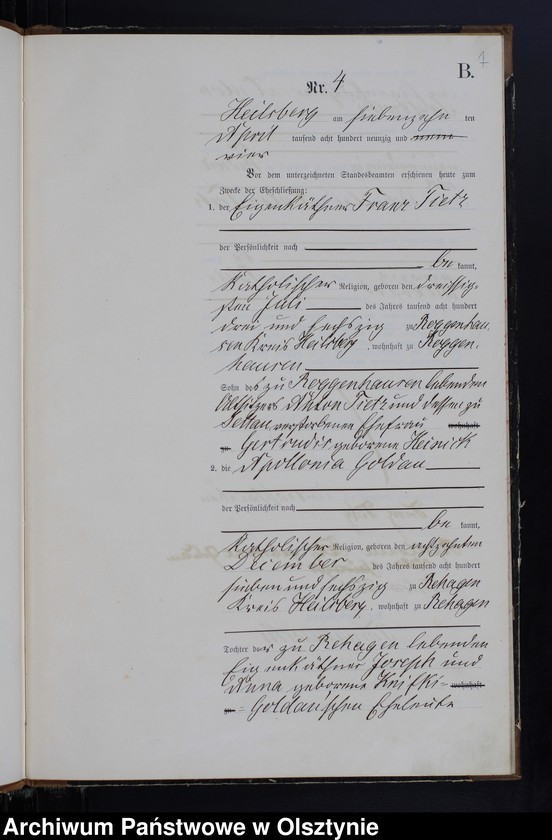 B. 7
Nr. 4
Heilsberg am siebenzehn ten
April tausend acht hundert neunzig und neun
vier
Vor dem unterzeichneten Standesbeamten erschienen heute zum
Zwecke der Eheschließung:
1. der Eigenkäthner Franz Tietz
der Persönlichkeit nach
be kannt,
katholischer Religion, geboren den dreissig-
sten Juli des Jahres tausend acht hundert
drei und sechszig zu Roggenhau-
sen Kreis Heilsberg, wohnhaft zu Roggen-
hausen
Sohn des zu Roggenhausen lebenden
Altsitzers Anton Tietz und dessen zu
verstorbenen Ehefrau wohnhaft
zu Gertrudis geborene Heinick
2. die Apollonia Goldau
der Persönlichkeit nach
be kannt,
katholischer Religion, geboren den achtzehnten
Dezember des Jahres tausend acht hundert
sieben und sechszig zu Rehagen
Kreis Heilsberg, wohnhaft zu Rehagen
Tochter der zu Rehagen lebenden
Eigenkäthner Joseph und
Anna geborene wohnhaft
zu = Goldau'schen Eheleute
Archiwum Państwowe w Olsztynie